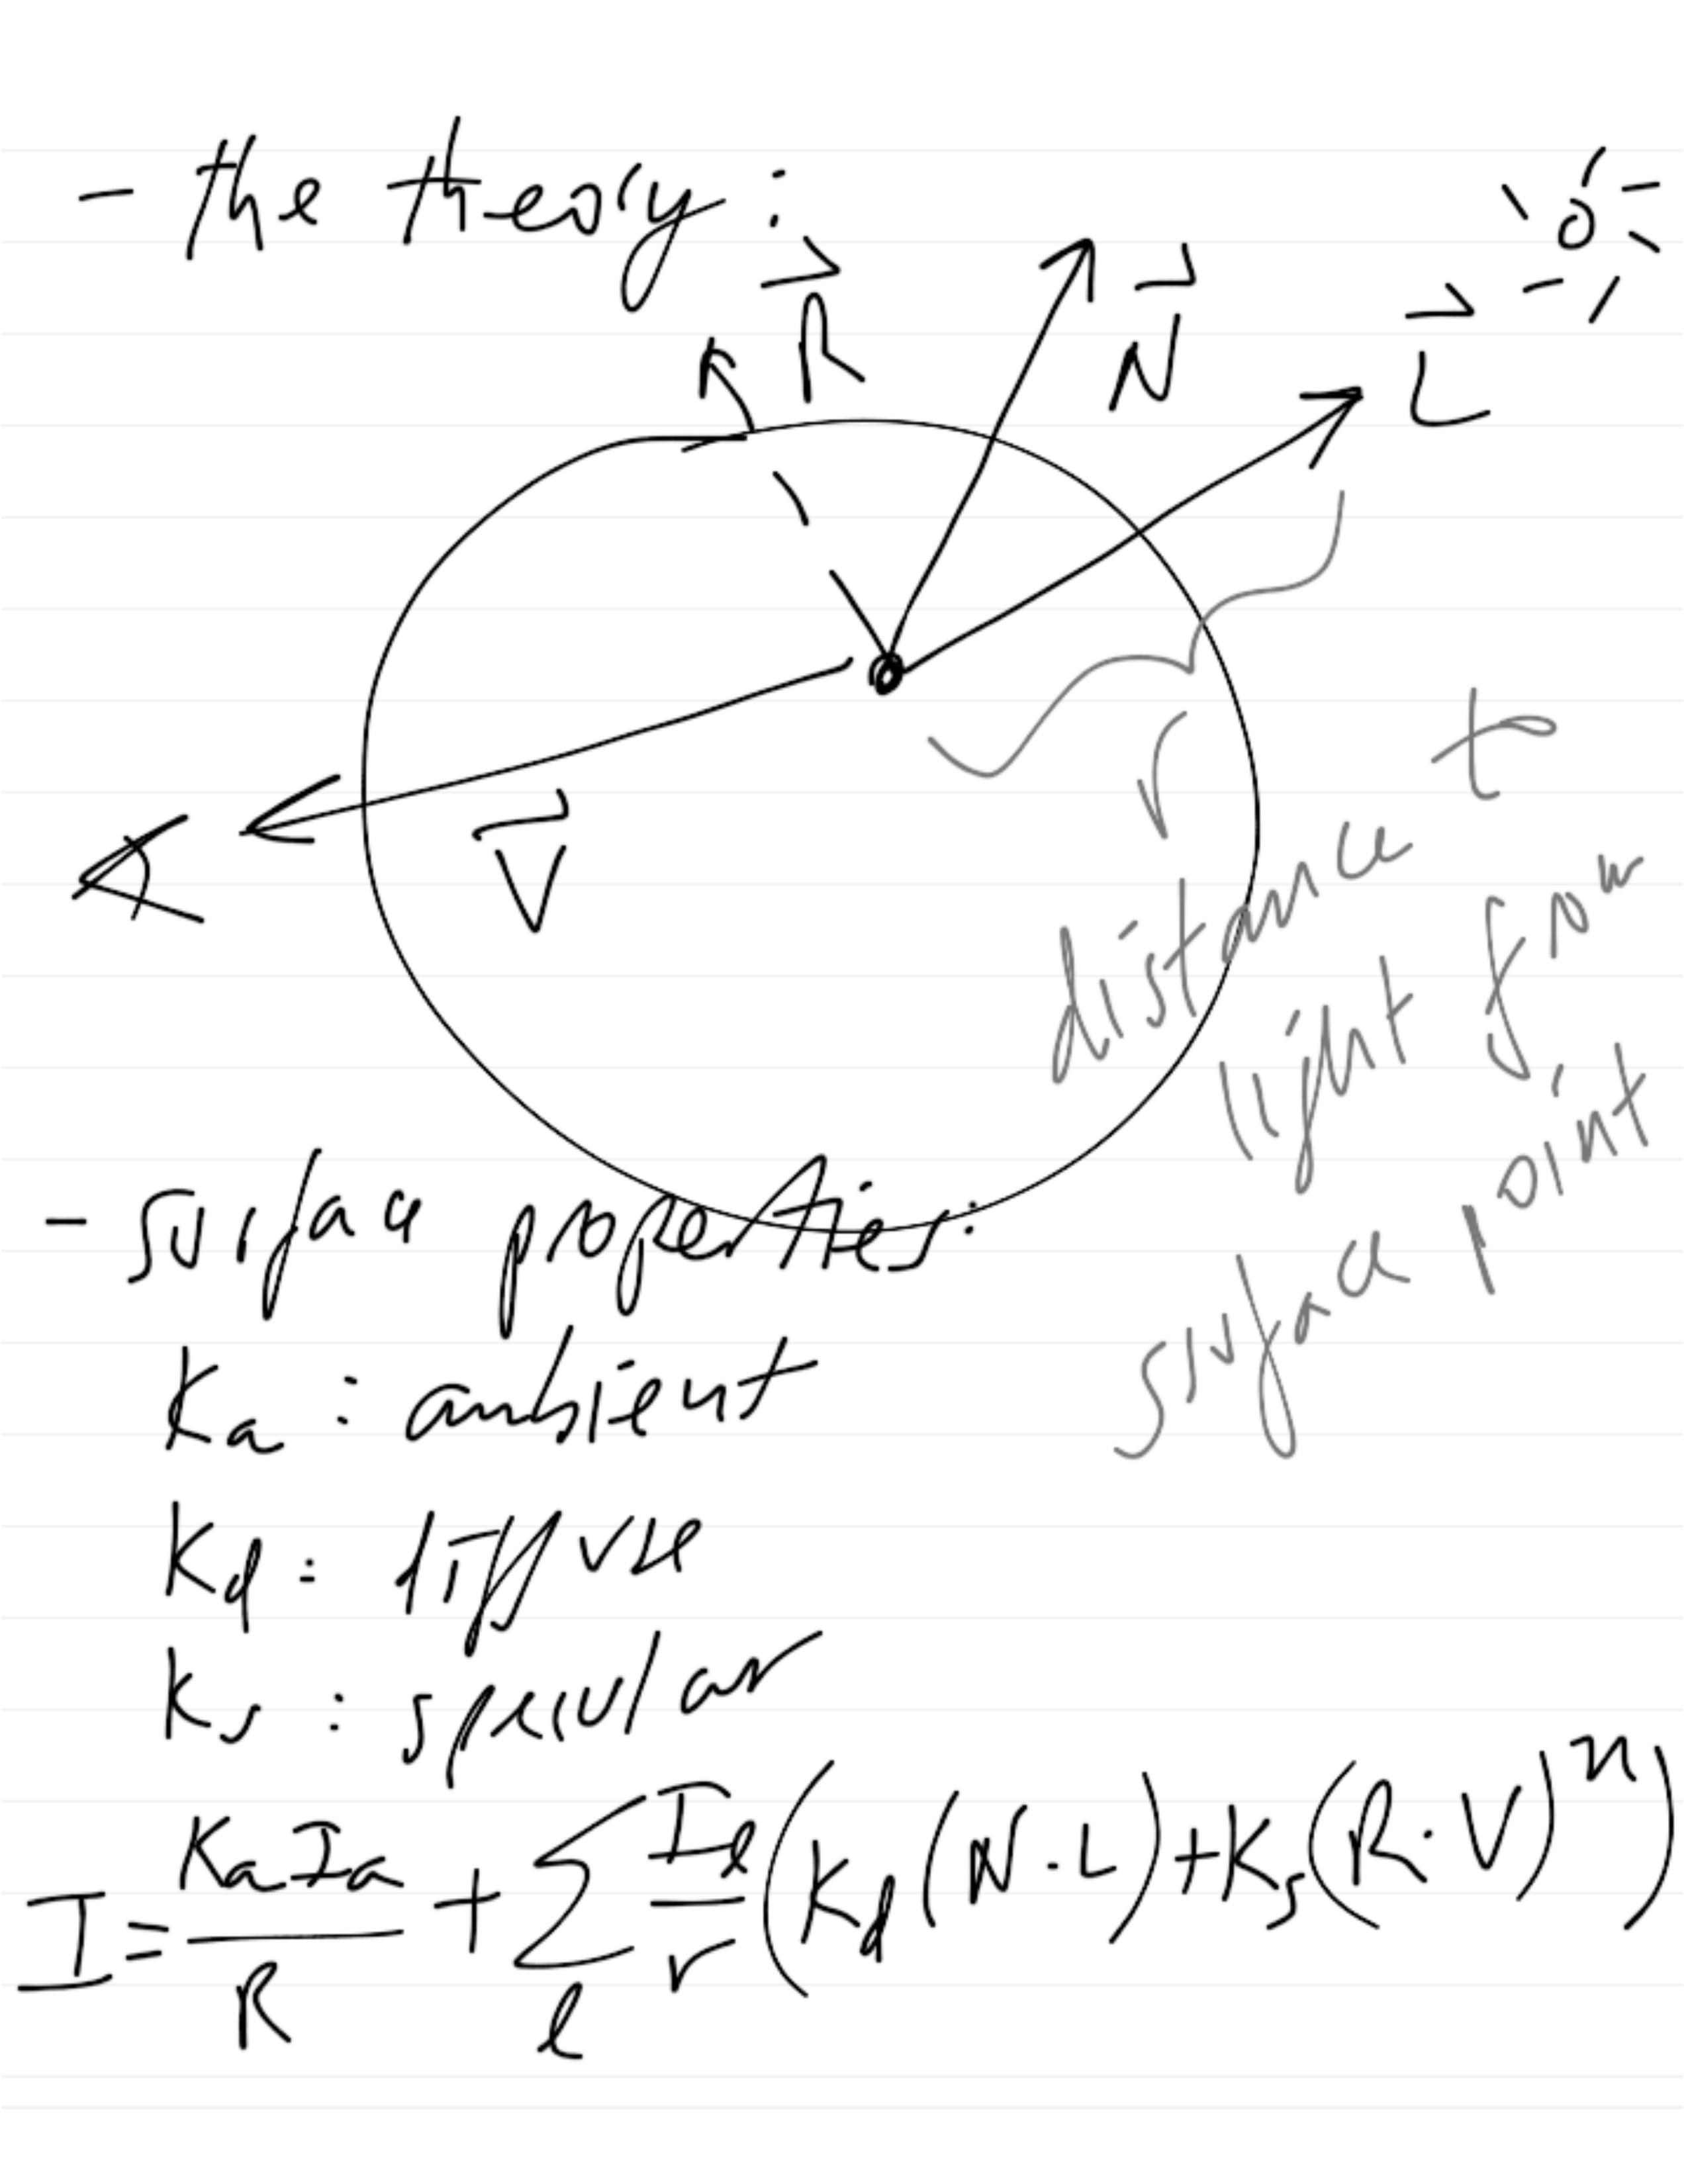 - the theory :
R
N
L
V
r
distance to
light from
surface point
- surface properties:
Ka : ambient
Kd : diffuse
Ks : specular
I = KaIa/R + Σl Il/r (Kd(N·L) + Ks(R·V)^n)